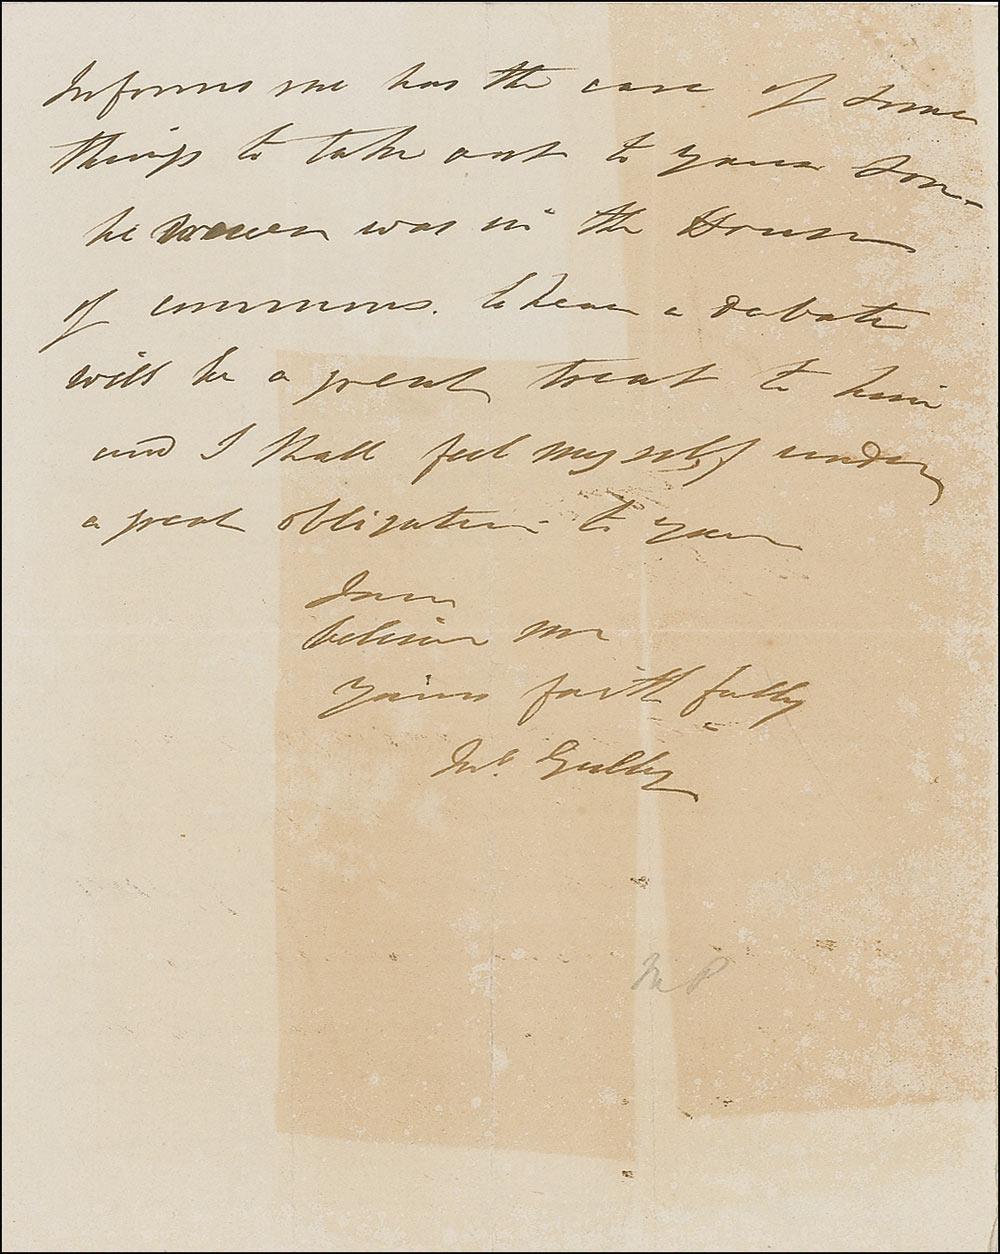 Informs me has the care of some
things to take out to your Son-
he never was in the House
of commons. to hear a debate
will be a great treat to him
and I shall feel myself under
a great obligation to you
I am
believe me
yours faithfully
Jno. Gully
MP